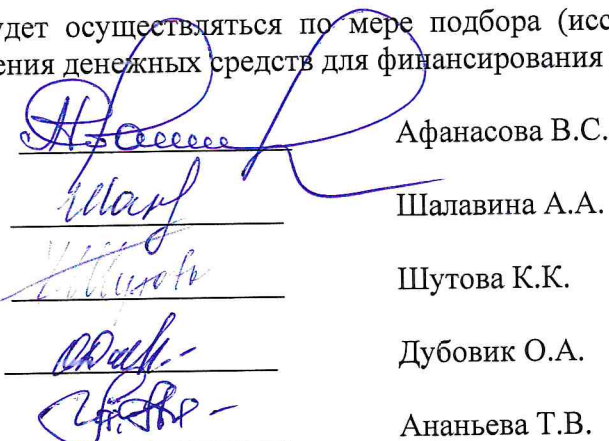 удет осуществляться по мере подбора (исс
ения денежных средств для финансирования
Афанасова В.С.
Шалавина А.А.
Шутова К.К.
Дубовик О.А.
Ананьева Т.В.